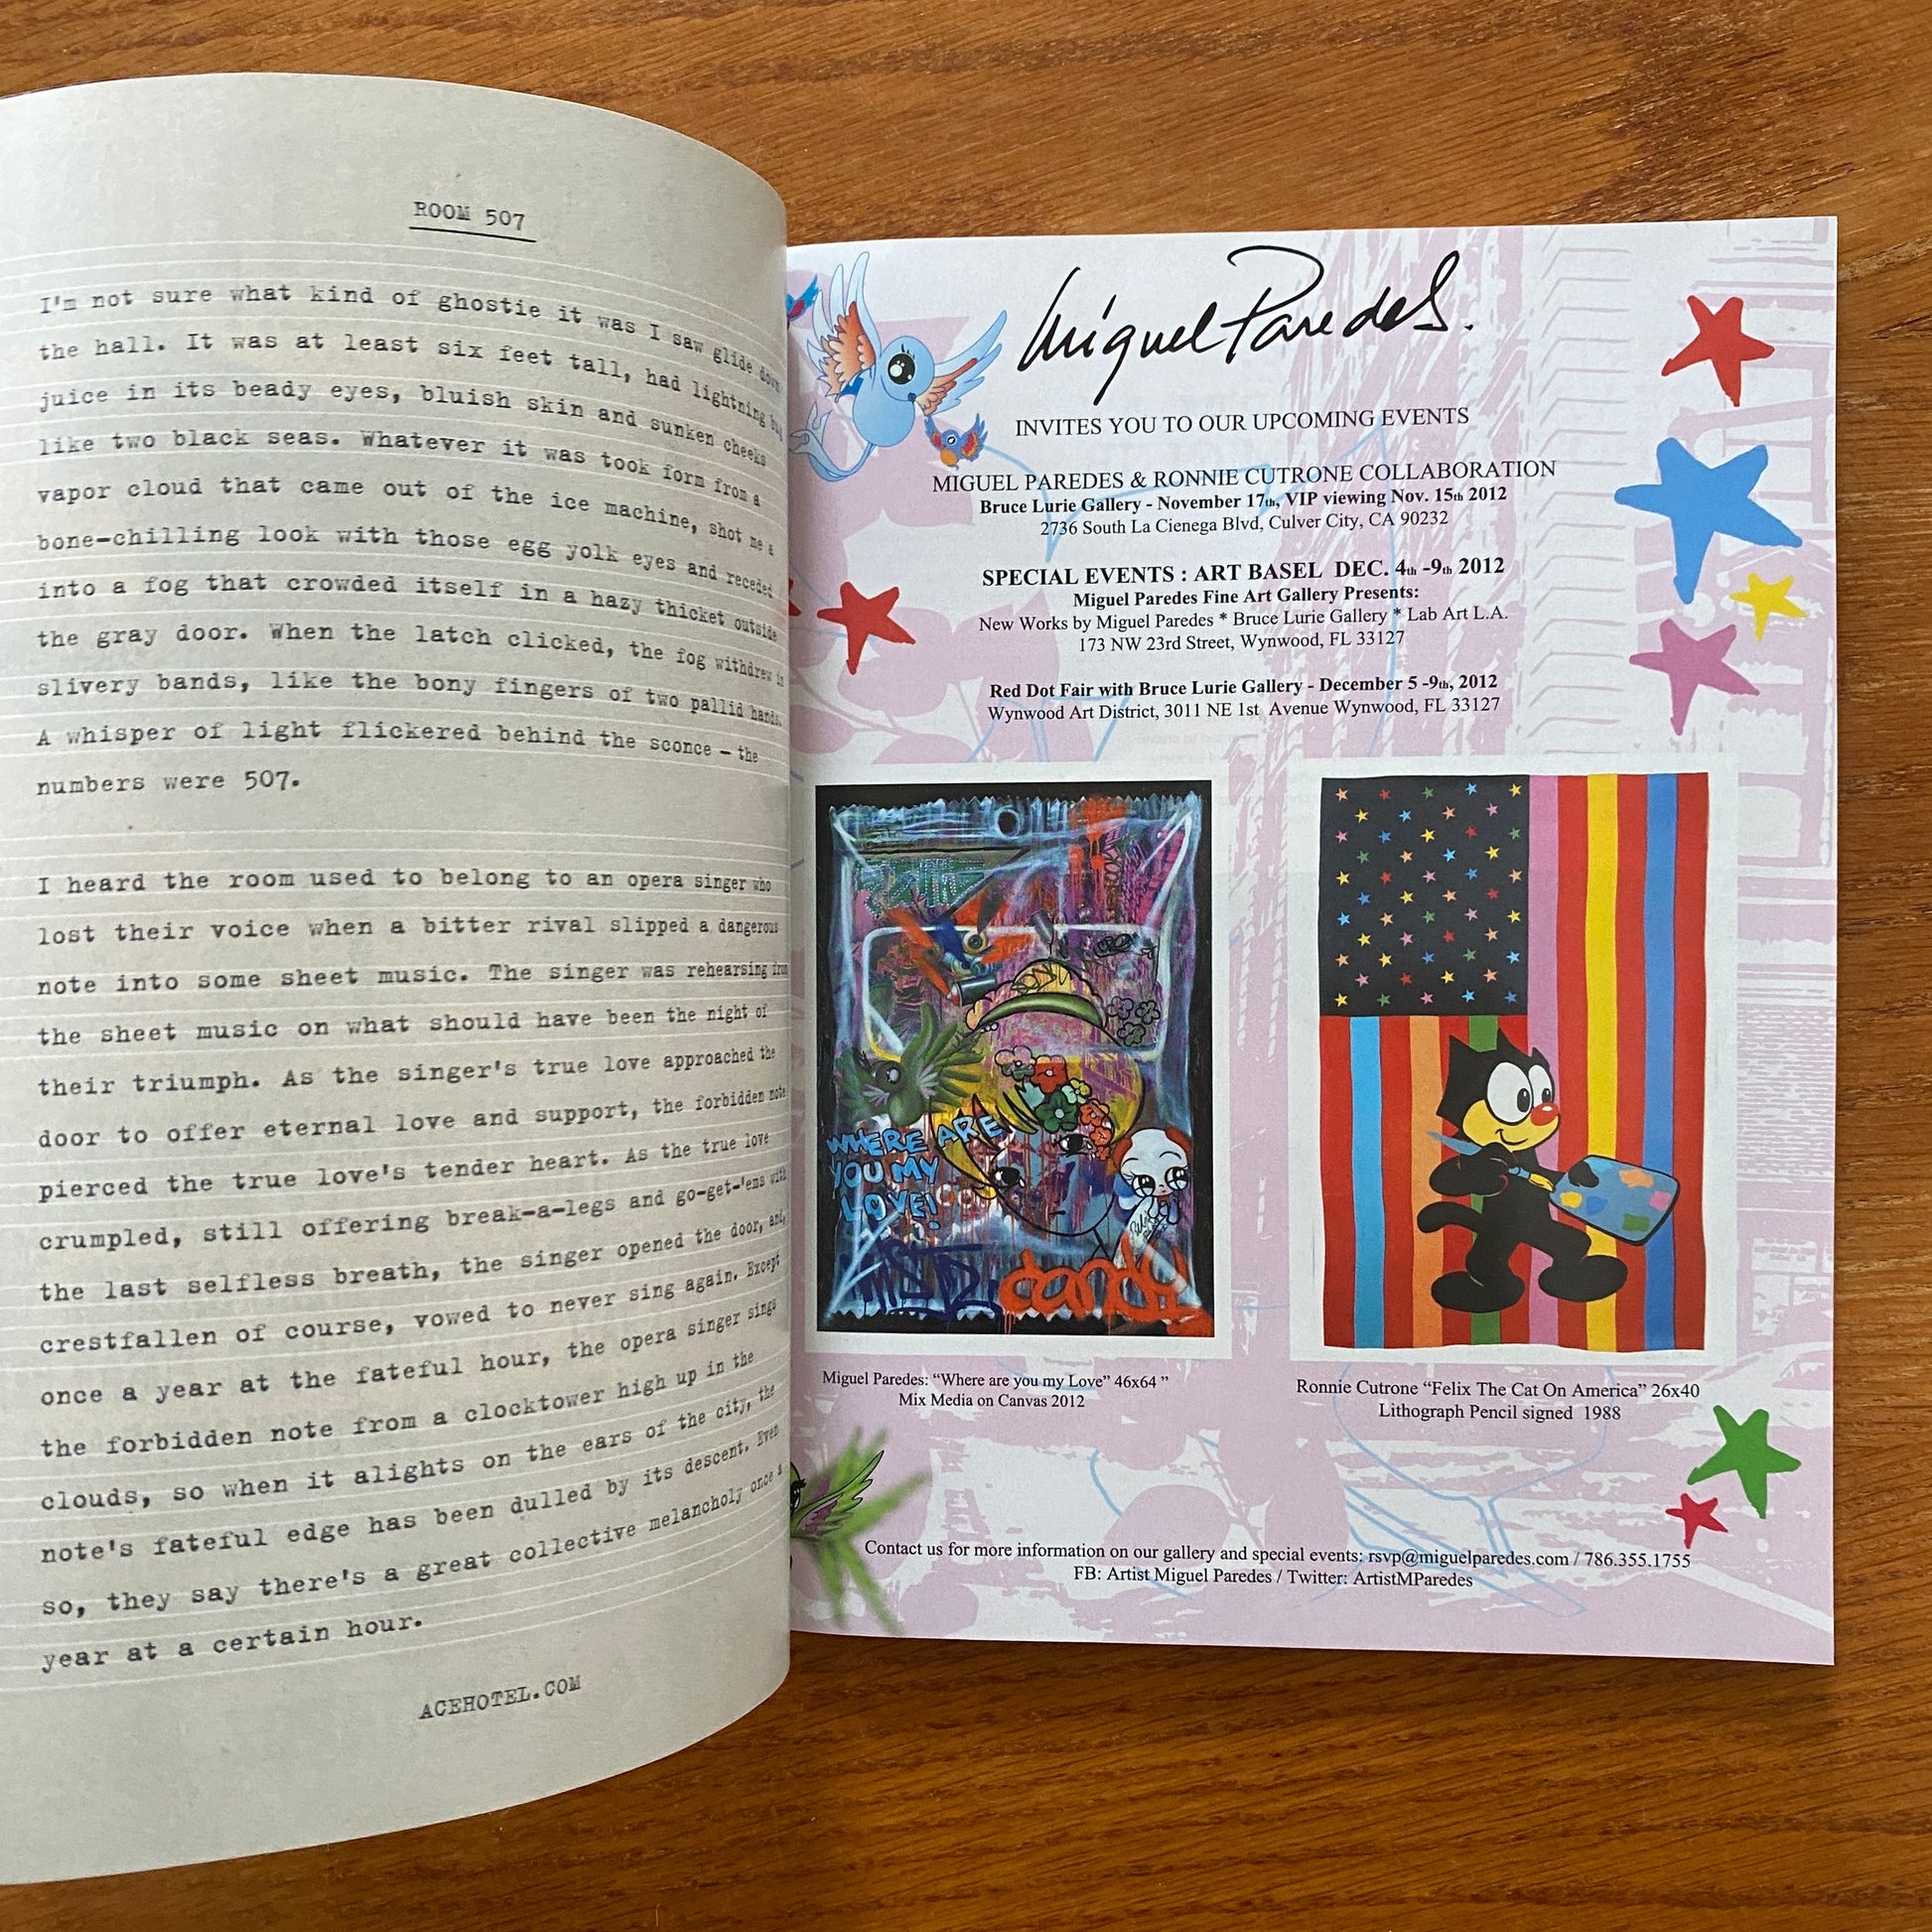 ROOM 507
I'm not sure what kind of ghostie it was I saw glide down
the hall. It was at least six feet tall, had lightning bug
juice in its beady eyes, bluish skin and sunken cheeks
like two black seas. Whatever it was took form from a
vapor cloud that came out of the ice machine, shot me a
bone-chilling look with those egg yolk eyes and receded
into a fog that crowded itself in a hazy thicket outside
the gray door. When the latch clicked, the fog withdrew in
slivery bands, like the bony fingers of two pallid hands.
A whisper of light flickered behind the sconce - the
numbers were 507.
I heard the room used to belong to an opera singer who
lost their voice when a bitter rival slipped a dangerous
note into some sheet music. The singer was rehearsing from
the sheet music on what should have been the night of
their triumph. As the singer's true love approached the
door to offer eternal love and support, the forbidden note
pierced the true love's tender heart. As the true love
crumpled, still offering break-a-legs and go-get-'ems with
the last selfless breath, the singer opened the door, and,
crestfallen of course, vowed to never sing again. Except
once a year at the fateful hour, the opera singer sings
the forbidden note from a clocktower high up in the
clouds, so when it alights on the ears of the city, the
note's fateful edge has been dulled by its descent. Even
so, they say there's a great collective melancholy once a
year at a certain hour.
ACEHOTEL.COM
Miguel Paredes.
INVITES YOU TO OUR UPCOMING EVENTS
MIGUEL PAREDES & RONNIE CUTRONE COLLABORATION
Bruce Lurie Gallery - November 17th, VIP viewing Nov. 15th 2012
2736 South La Cienega Blvd, Culver City, CA 90232
SPECIAL EVENTS : ART BASEL DEC. 4th -9th 2012
Miguel Paredes Fine Art Gallery Presents:
New Works by Miguel Paredes * Bruce Lurie Gallery * Lab Art L.A.
173 NW 23rd Street, Wynwood, FL 33127
Red Dot Fair with Bruce Lurie Gallery - December 5 -9th, 2012
Wynwood Art District, 3011 NE 1st Avenue Wynwood, FL 33127
WHERE ARE
YOU MY
LOVE!
candy
Miguel Paredes: “Where are you my Love” 46x64 ”
Mix Media on Canvas 2012
Ronnie Cutrone “Felix The Cat On America” 26x40
Lithograph Pencil signed 1988
Contact us for more information on our gallery and special events: rsvp@miguelparedes.com / 786.355.1755
FB: Artist Miguel Paredes / Twitter: ArtistMParedes